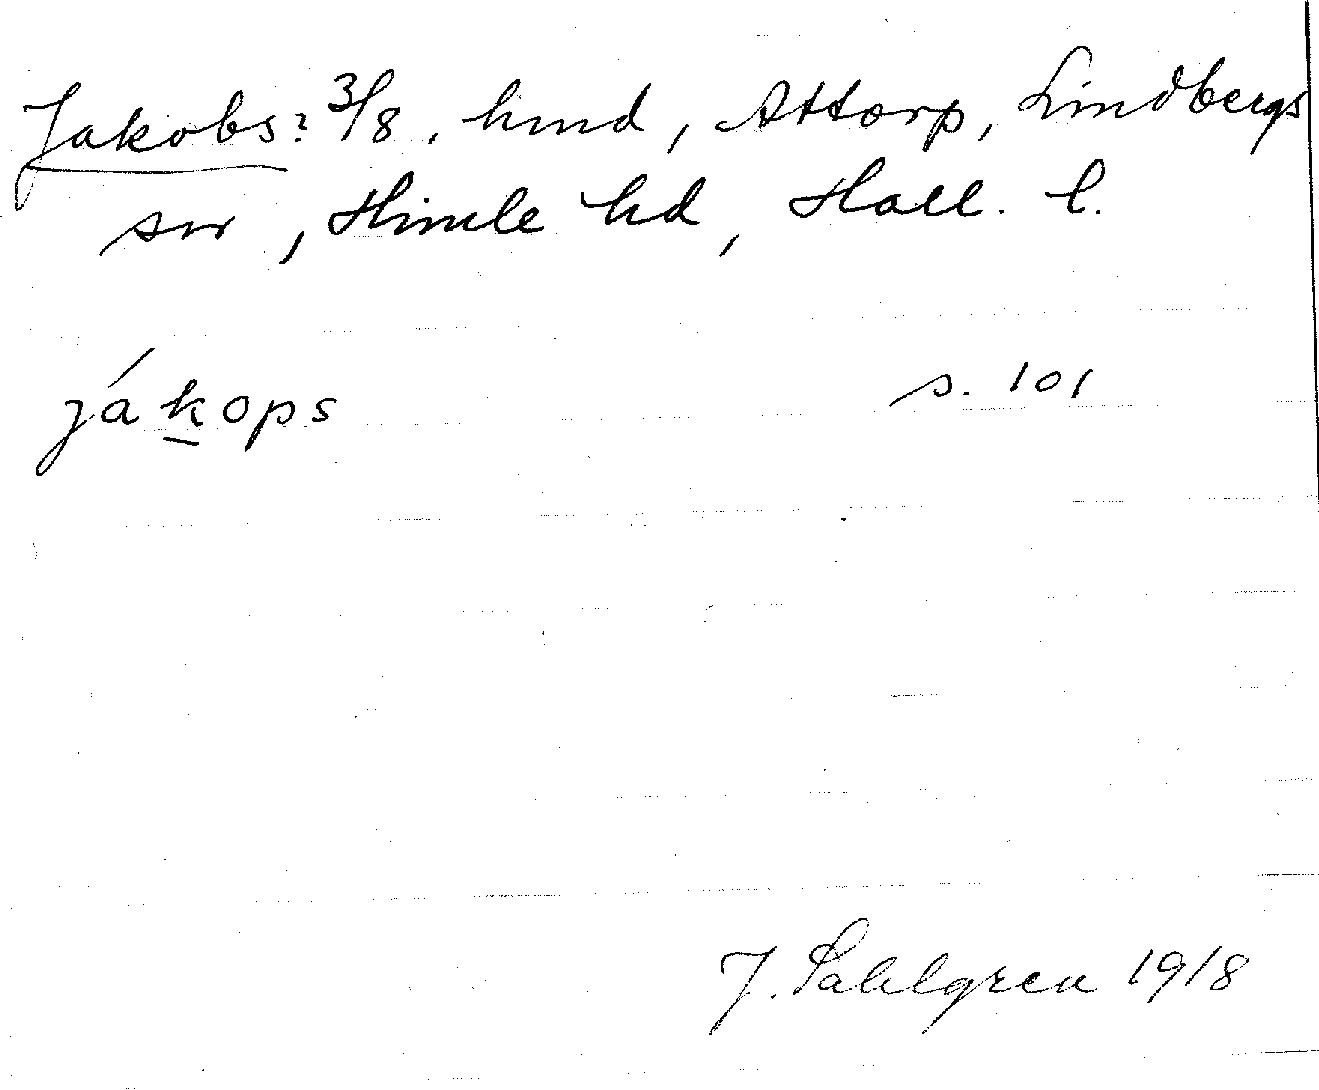 Jakobs: 3/8, hmd, Attorp, Lindbergs
sn, Himle hd, Hall. l.
jákops s. 101
J. Sahlgren 1918